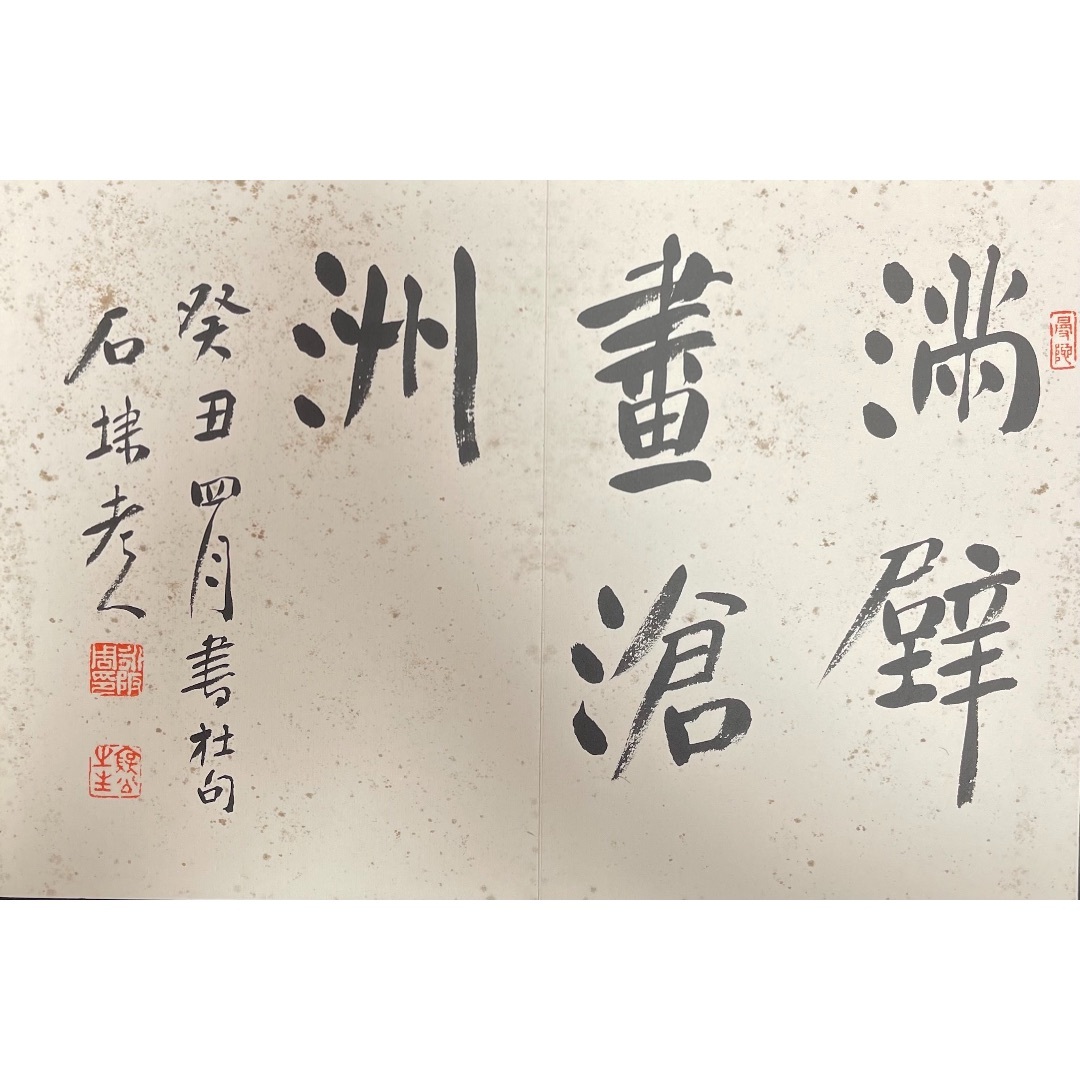 滿壁
畫滄
洲
癸丑四月書杜句
石埭老人
永阪周印